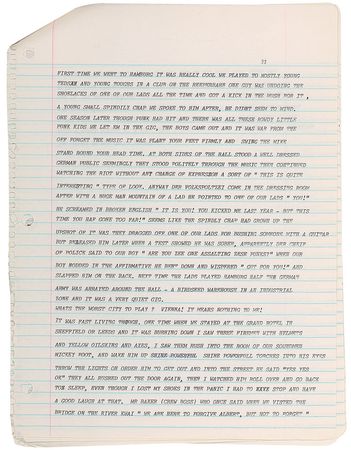 71
FIRST TIME WE WENT TO HAMBURG IT WAS REALLY COOL WE PLAYED TO MOSTLY YOUNG
TEDDIES AND YOUNG TOUGHS IN A CLUB ON THE REEPERBAHN ONE GUY WAS UNDOING THE
SHOELACES OF ONE OF OUR LADS ALL THE TIME AND GOT A KICK IN THE MUSH FOR IT ,
A YOUNG SMALL SPINDILY CHAP WE SPOKE TO HIM AFTER, HE DIDNT SEEM TO MIND.
ONE SEASON LATER THOUGH PUNK HAD HIT AND THERE WAS ALL THESE ROWDY LITTLE
PUNK KIDS WE LET EM IN THE GIG, THE BOYS CAME OUT AND IT WAS WAR FROM THE
OFF FORGET THE MUSIC IT WAS PLANT YOUR FEET FIRMLY AND SWING THE MIKE
STAND ROUND YOUR HEAD TIME. AT BOTH SIDES OF THE HALL STOOD A WELL DRESSED
GERMAN PUBLIC SEEMINGLY THEY STOOD POLITELY THROUGH THE MUSIC THEN CONTINUED
WATCHING THE RIOT WITHOUT ANY CHANGE OF EXPRESSION A SORT OF " THIS IS QUITE
INTERESTING " TYPE OF LOOK. ANYWAY DER VOLKSPOLIZEI COME IN THE DRESSING ROOM
AFTER WITH A HUGE MAN MOUNTAIN OF A LAD HE POINTED TO ONE OF OUR LADS " YOU!"
HE SCREAMED IN BROKEN ENGLISH " IT IS YOU! YOU KICKED ME LAST YEAR - BUT THIS
TIME YOU HAF GONE TOO FAR!" SEEMS LIKE THE SPINDLY CHAP HAD GROWN UP THE
UPSHOT OF IT WAS THEY DRAGGED OFF ONE OF OUR LADS FOR BRUSHING SOMEONE WITH A GUITAR
BUT RELEASED HIM LATER WHEN A TEST SHOWED HE WAS SOBER, APPARENTLY DER CHEIF
OF POLICE SAID TO OUR BOY " ARE YOU ZEE ONE ASSALTING ZESE PUNKS?" WHEN OUR
BOY NODDED IN THE AFFIRMATIVE HE BENT DOWN AND WISPERED " GUT FOR YOU!" AND
SLAPPED HIM ON THE BACK. NEXT TIME THE LADS PLAYED HAMBURG HALF THE GERMAN
ARMY WAS ARRAIED AROUND THE HALL - A BIRDSEED WAREHOUSE IN AN INDUSTRIAL
ZONE AND IT WAS A VERY QUIET GIG.
WHATS THE WORST CITY TO PLAY ? VIENNA! IT MEANS NOTHING TO ME!
IT WAS FAST LIVING THOUGH, ONE TIME WHEN WE STAYED AT THE GRAND HOTEL IN
SHEFFIELD OR LEEDS AND IT WAS BURNING DOWN I SAW THREE FIREMEN WITH HELMETS
AND YELLOW OILSKINS AND AXES, I SAW THEM RUSH INTO THE ROOM OF OUR SOUNDMAN
MICKEY FOOT, AND WAKE HIM UP SHINE POWERFUL SHINE POWERFULL TORCHES INTO HIS EYES
THROW THE LIGHTS ON ORDER HIM TO GET OUT AND INTO THE STREET HE SAID "YES YES
OK" THEY ALL RUSHED OUT THE DOOR AGAIN, THEN I WATCHED HIM ROLL OVER AND GO BACK
TOO SLEEP, EVEN THOUGH I LOST MY SHOES IN THE PANIC I HAD TO STOP AND HAVE
A GOOD LAUGH AT THAT. MR BAKER (CREW BOSS) WHO ONCE SAID WHEN WE VISTED THE
BRIDGE ON THE RIVER KWAI " WE ARE HERE TO FORGIVE ALBERT, BUT NOT TO FORGET."